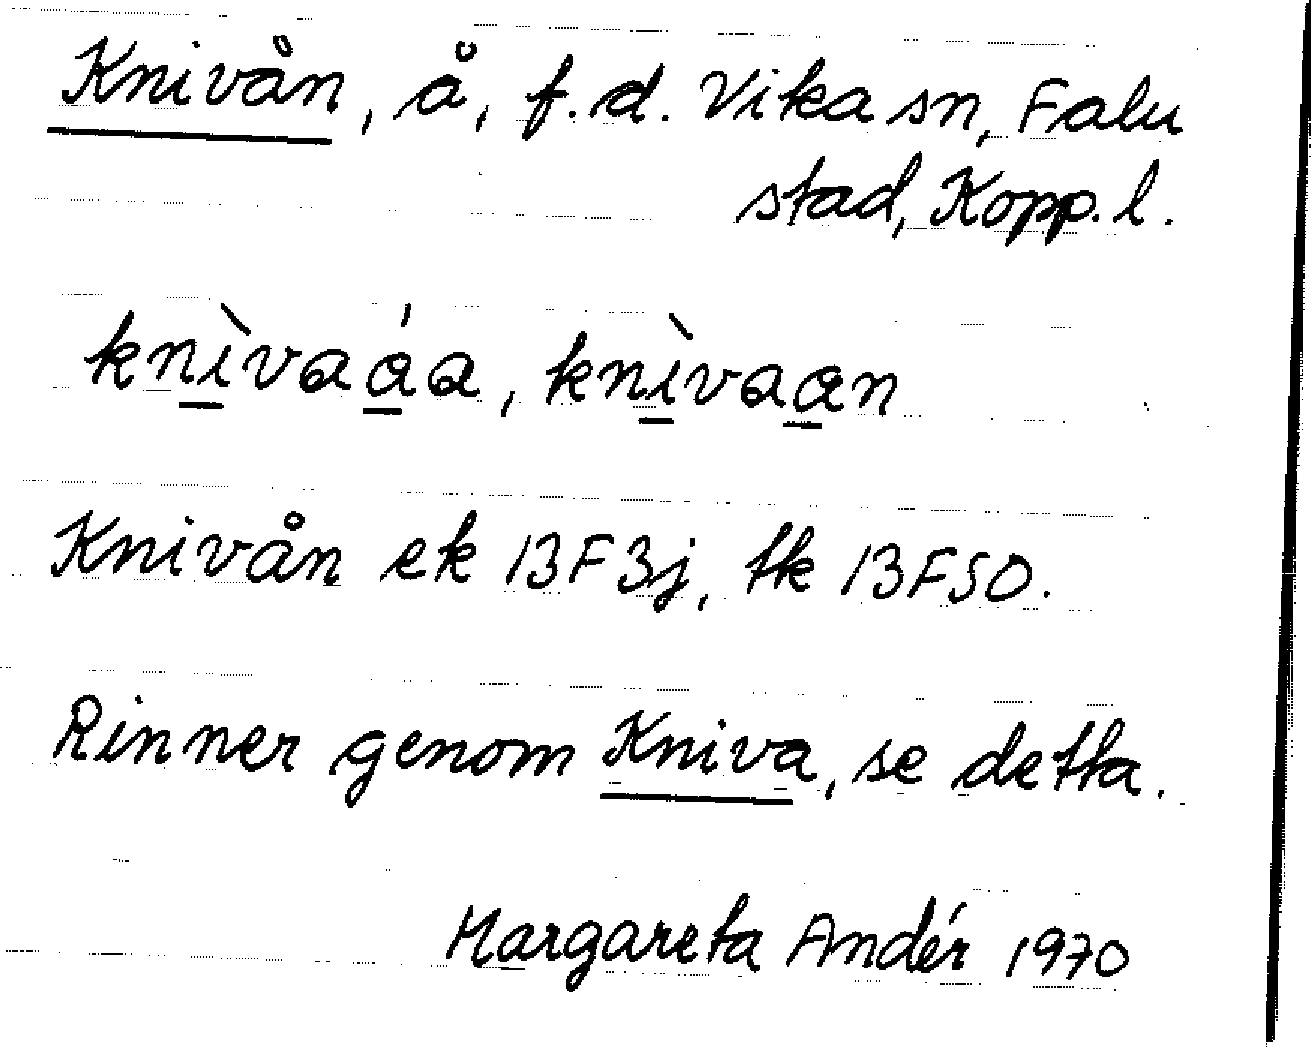 Knivån, å, f.d. Vika sn, Falu
stad, Kopp. l.
knìvaáa, knìvaan
Knivån ek 13F3j, tk 13F SO.
Rinner genom Kniva, se detta.
Margareta Andér 1970